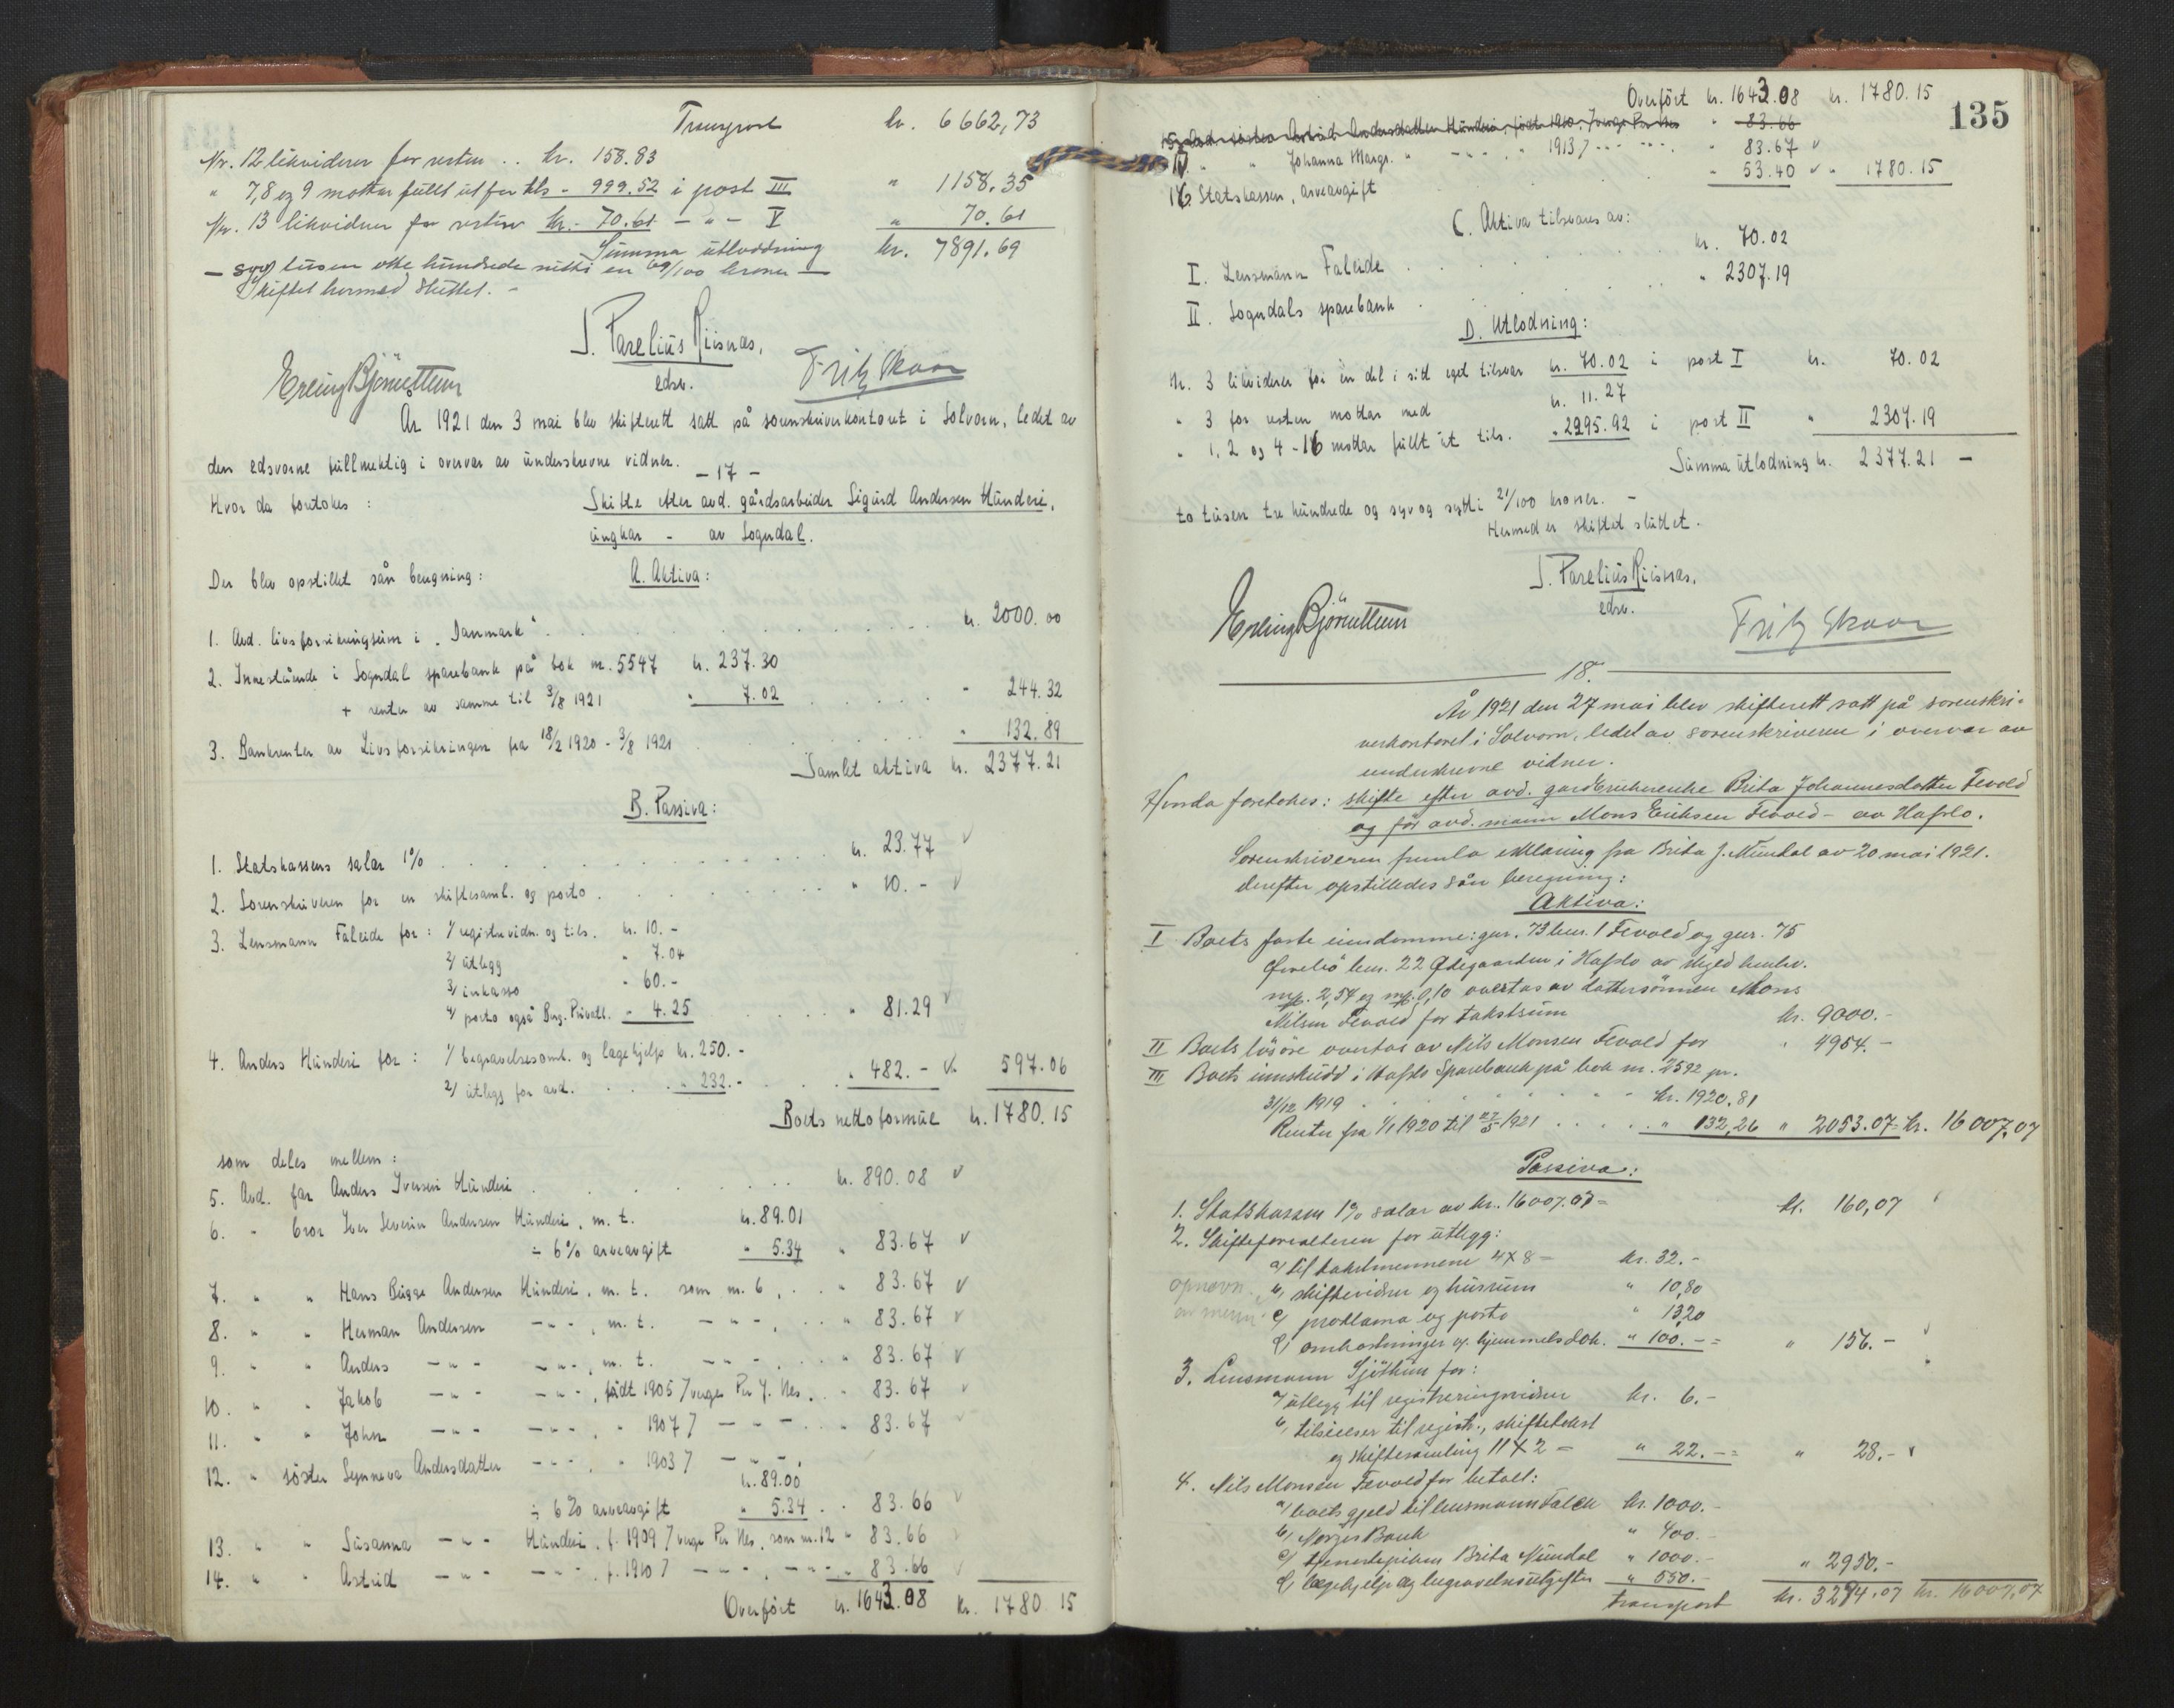 Transport kr. 6662,73
Nr. 12 likviderer for resten .. kr. 158.83
" 7,8 og 9 mottar fullt ut for tils - 999.52 i post III " 1158.35
Nr. 13 likviderer for resten kr. - 70.61 - " - V " 70.61
Summa utloddning kr. 7891.69
- syv tusen otte hundrede nitti en 69/100 kroner -
Skiftet hermed sluttet. -
J. Parelius Riisnæs,
edsv.
Erling Bjørnettum Fritz Skaar
År 1921 den 3 mai blev skifterett satt på sorenskriverkontoret i Solvorn, ledet av
den edsvorne fullmektig i overvær av underskrevne vidner.
- 17 -
Hvor da foretokes : Skifte efter avd. gårdsarbeider Sigurd Andersen Hunderi,
ungkar - av Sogndal.
Der blev opstillet sån beregning : A. Aktiva :
1. Avd. livsforsikringsum i "Danmark" . kr. 2000.00
2. Innestående i Sogndal sparebank på bok nr. 5547 kr. 237.30
+ renter av samme til 3/8 1921 " 7.02 - 244.32
3. Bankrenter av Livsforsikringen fra 18/2 1920 - 3/8 1921 " 132.89
Samlet aktiva kr. 2377.21
B. Passiva :
1. Statskassens salær 1% kr. 23.77 √
2. Sorenskriveren for en skiftesaml. og porto . " 10. - √
3. Lensmann Faleide for : 1/ registr.vidn. og tils. kr. 10. -
2/ utlegg " 7.04
3/ inkasso - 60. -
4/ porto også Berg. Privatb. - 4.25 " 81.29 √
4. Anders Hunderi for : 1/ begravelsesomk. og lægehjelp kr. 250. -
2/ utlegg for avd. " 232. - " 482. - √ 597.06
Boets nettoformue kr. 1780.15
som deles mellem :
5. Avd. far Anders Iversen Hunderi . kr. 890.08 √
6. " bror Iver Severin Andersen Hunderi, m. t. kr. 89.01
÷ 6% arveavgift " 5.34 " 83.67 √
7. " " Hans Bugge Andersen Hunderi, m. t. som nr. 6, . " 83.67 √
8. " " Herman Andersen - " - , m. t. - " - , " 83.67 √
9. " " Anders - " - - " - , m. t. - " - , " 83.67 √
10. " " Jakob - " - - " - , født 1905 / verge Per J. Nes . " 83.67 √
11. " " John - " - - " - , " 1907 / - " - " 83.67 √
12. " søster Synneva Andersdatter - " - , " 1903 / - " - .
kr. 89.00
÷ 6% arveavgift " 5.34 . " 83.66 √
13. " " Susanna - " - Hunderi, f. 1909 / verge Per Nes, som nr. 12 " 83.66
14. " " Astrid - " - - " - , f. 1910 / - " - , - " - " 83.66 √
Overført kr. 1643.08 kr. 1780.15
Overført kr. 1643.08 kr. 1780.15
135
15. Avd. søster Astrid Andersdatter Hunderi, født 1910. / verge Per Nes " 83.66
" " Johanna Margr. " - - - " 1913 / - - - " 83.67 √
16. Statskassen, arveavgift " 53.40 √ " 1780.15
C. Aktiva tilsvares av :
I. Lensmann Faleide kr. 70.02
II. Sogndals sparebank " 2307.19
D. Utlodning :
Nr. 3 likviderer for en del i sitt eget tilsvar kr. 70.02 i post I kr. 70.02
" 3 for resten mottar med kr. 11.27
" 1, 2 og 4 - 16 mottar fullt ut tils. " 2295.92 i post II " 2307.19
Summa utlodning kr. 2377.21 -
to tusen tre hundrede og syv og sytti 21/100 kroner. -
Hermed er skiftet sluttet .
J. Parelius Riisnæs.
edsv.
Erling Bjørnettum Fritz Skaar
18.
År 1921 den 27 mai blev skifterett satt på sorenskri-
verkontoret i Solvorn, ledet av sorenskriveren i overvær av
underskrevne vidner.
Hvorda foretokes : skifte efter avd. gardbrukerenke Brita Johannesdatter Fevold
og før avd. mann Mons Eriksen Fevold - av Hafslo.
Sorenskriveren fremla erklæring fra Brita J. Mundal av 20 mai 1921.
derefter opstilledes sån beregning :
Aktiva :
I Boets faste eiendomme : gnr. 73 bnr. 1 Fevold og gnr. 75
bnr. 22 Ødegaarden i Hafslo av skyld henhv.
mrk. 2,54 og mrk. 0,10 overtas av dattersønnen Mons
Nilsen Fevold for takstsum kr. 9000. -
II Boets løsøre overtas av Nils Monsen Fevold for " 4954. -
III Boets innskudd i Hafslo Sparebank på bok nr. 2592 pr.
31/12 1919 kr. 1920.81
Renter fra 1/1 1920 til 27/5 1921 " 132,26 " 2053.07 = kr. 16007,07
Passiva :
1. Statskassen 1% salær av kr. 16007.07 = kr. 160,07
2. Skifteforvalteren for utlegg :
a/ til takstmennene 4 x 8 = kr. 32. -
opnevn. b/ skiftevidner og husrum " 10,80
av menn c/ proklama og porto " 13,20
d/ omkostninger v. hjemmelsdok. " 100. - = " 156. -
3. Lensmann Sjøthun for :
a/ utlegg til registreringsvidner kr. 6. -
b/ tilsielser til registr., skiftetakst
og skiftesamling 11 x 2 = " 22. - = " 28. - √
4. Nils Monsen Fevold for betalt :
a/ boets gjeld til lensmann Falch kr. 1000. -
b/ Norges Bank " 400. -
c/ tjenestepiken Brita Mundal " 1000. -
d/ lægehjelp og begravelsesutgifter " 550. - " 2950. -
transport kr. 3294.07 kr. 16007,07